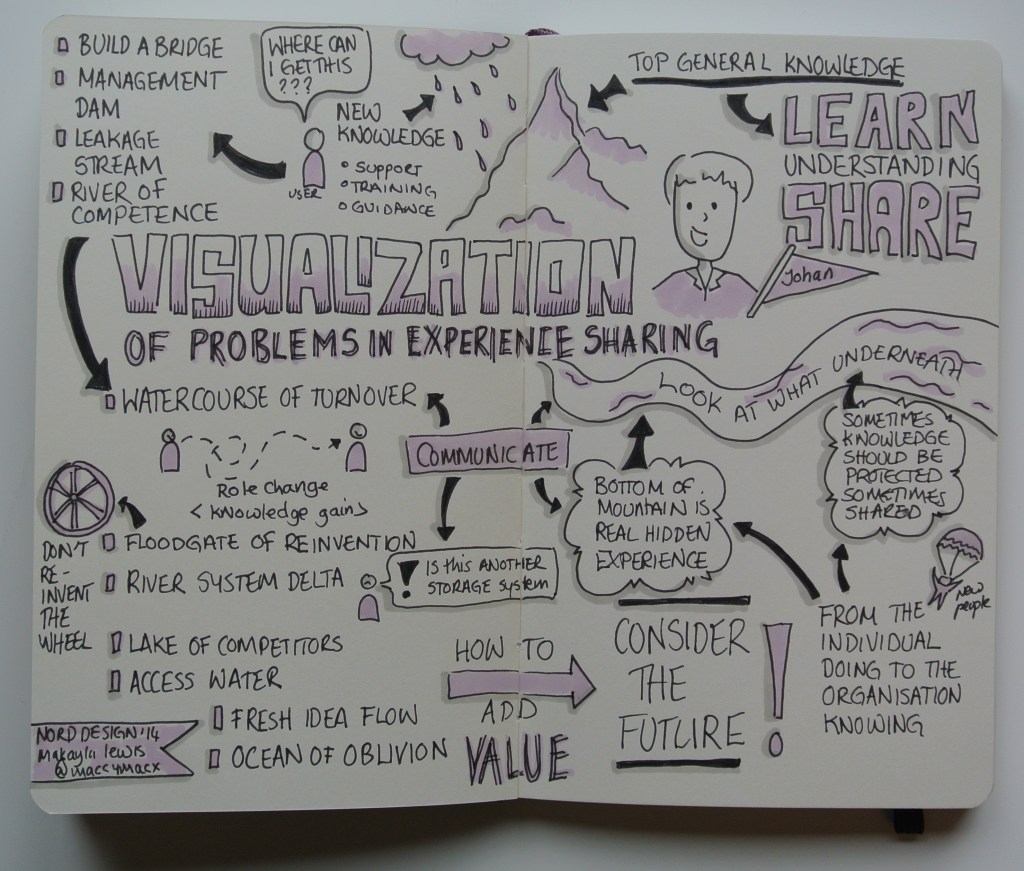 BUILD A BRIDGE
MANAGEMENT
DAM
LEAKAGE
STREAM
RIVER OF
COMPETENCE
WHERE CAN
I GET THIS
???
USER
NEW
KNOWLEDGE
SUPPORT
TRAINING
GUIDANCE
TOP GENERAL KNOWLEDGE
LEARN
UNDERSTANDING
SHARE
Johan
VISUALIZATION
OF PROBLEMS IN EXPERIENCE SHARING
WATERCOURSE OF TURNOVER
Role change
< knowledge gain >
COMMUNICATE
LOOK AT WHAT UNDERNEATH
SOMETIMES
KNOWLEDGE
SHOULD BE
PROTECTED
SOMETIMES
SHARED
BOTTOM OF
MOUNTAIN IS
REAL HIDDEN
EXPERIENCE
DON'T
RE-
INVENT
THE
WHEEL
FLOODGATE OF REINVENTION
RIVER SYSTEM DELTA
! IS this ANOTHER
STORAGE System
LAKE OF COMPETITORS
ACCESS WATER
FRESH IDEA FLOW
OCEAN OF OBLIVION
HOW TO
ADD
VALUE
CONSIDER
THE
FUTURE
!
New
people
FROM THE
INDIVIDUAL
DOING TO THE
ORGANISATION
KNOWING
NORD DESIGN '14
Makayla Lewis
@maccymacx